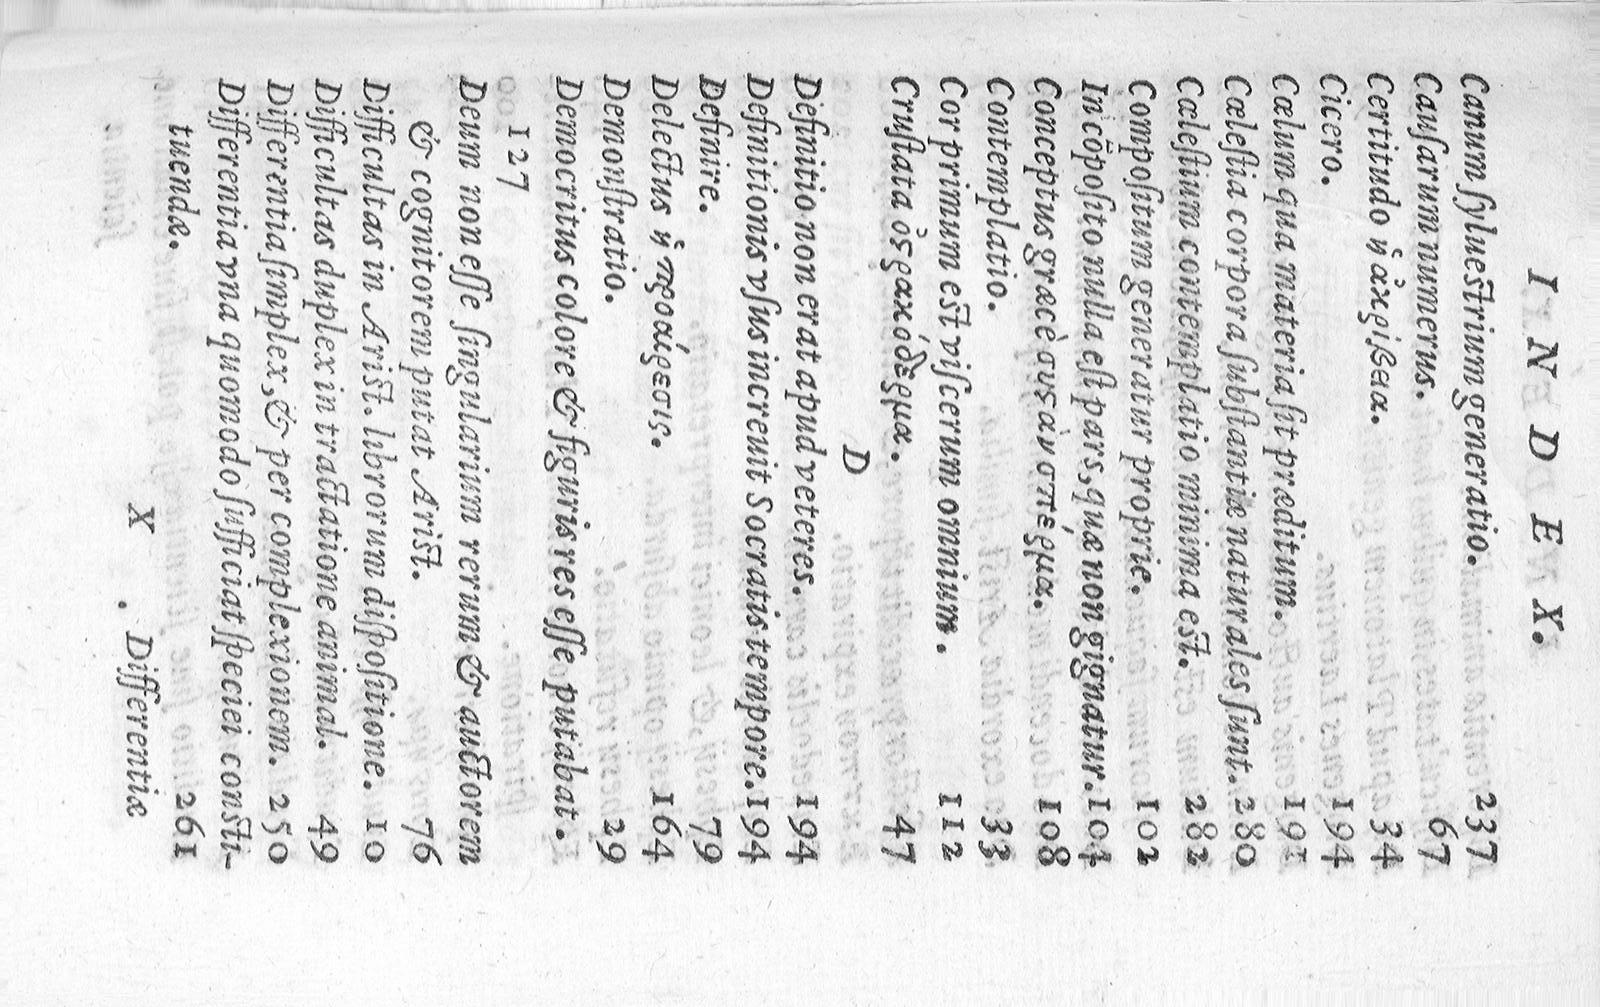 INDEX.
Canum ſylueſtrium generatio. 237
Cauſarum numerus. 67
Certitudo ἢ ἀκρίβεια. 34
Cicero. 194
Cælum qua materia ſit præditum. 191
Cæleſtia corpora ſubſtantiæ naturales ſunt. 280
Cæleſtium contemplatio minima eſt. 282
Compoſitum generatur proprie. 102
In cōpoſito nulla eſt pars, quæ non gignatur. 104
Conceptus græcè συσὰν σπέρμα. 108
Contemplatio. 33
Cor primum eſt viſcerum omnium. 112
Cruſtata ὀςρακόδερμα. 47
D
Definitio non erat apud veteres. 194
Definitionis vſus increuit Socratis tempore. 194
Definire. 79
Delectus ἢ προαίρεσις. 164
Demonſtratio. 29
Democritus colore & figuris res eſſe putabat.
127
Deum non eſſe ſingularium rerum & auctorem
& cognitorem putat Ariſt. 76
Difficultas in Ariſt. librorum diſpoſitione. 10
Difficultas duplex in tractatione animal. 49
Differentia ſimplex, & per complexionem. 250
Differentia vna quomodo ſufficiat ſpeciei conſti-
tuendæ. 261
X Differentiæ